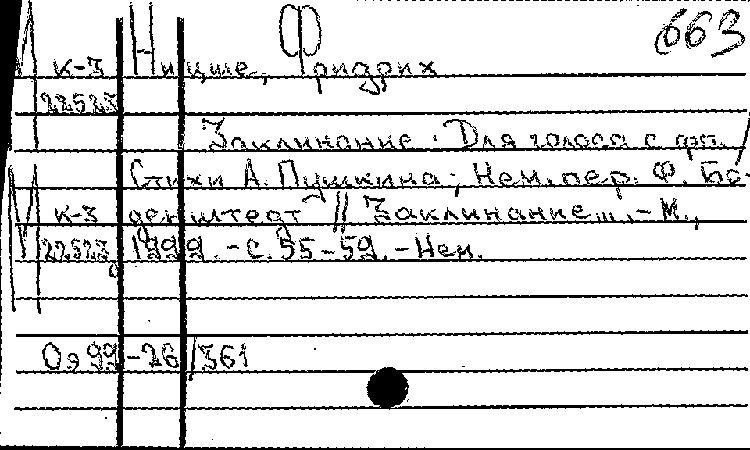 663
М к-3 Ницше, Фридрих
22523
Заклинание : Для голоса с фп. /
Стихи А. Пушкина ; Нем. пер. Ф. Бо-
М к-3 денштедт // Заклинание... - М.,
22523 1999. - С. 55-59. - Нем.
Оэ 99-26/361